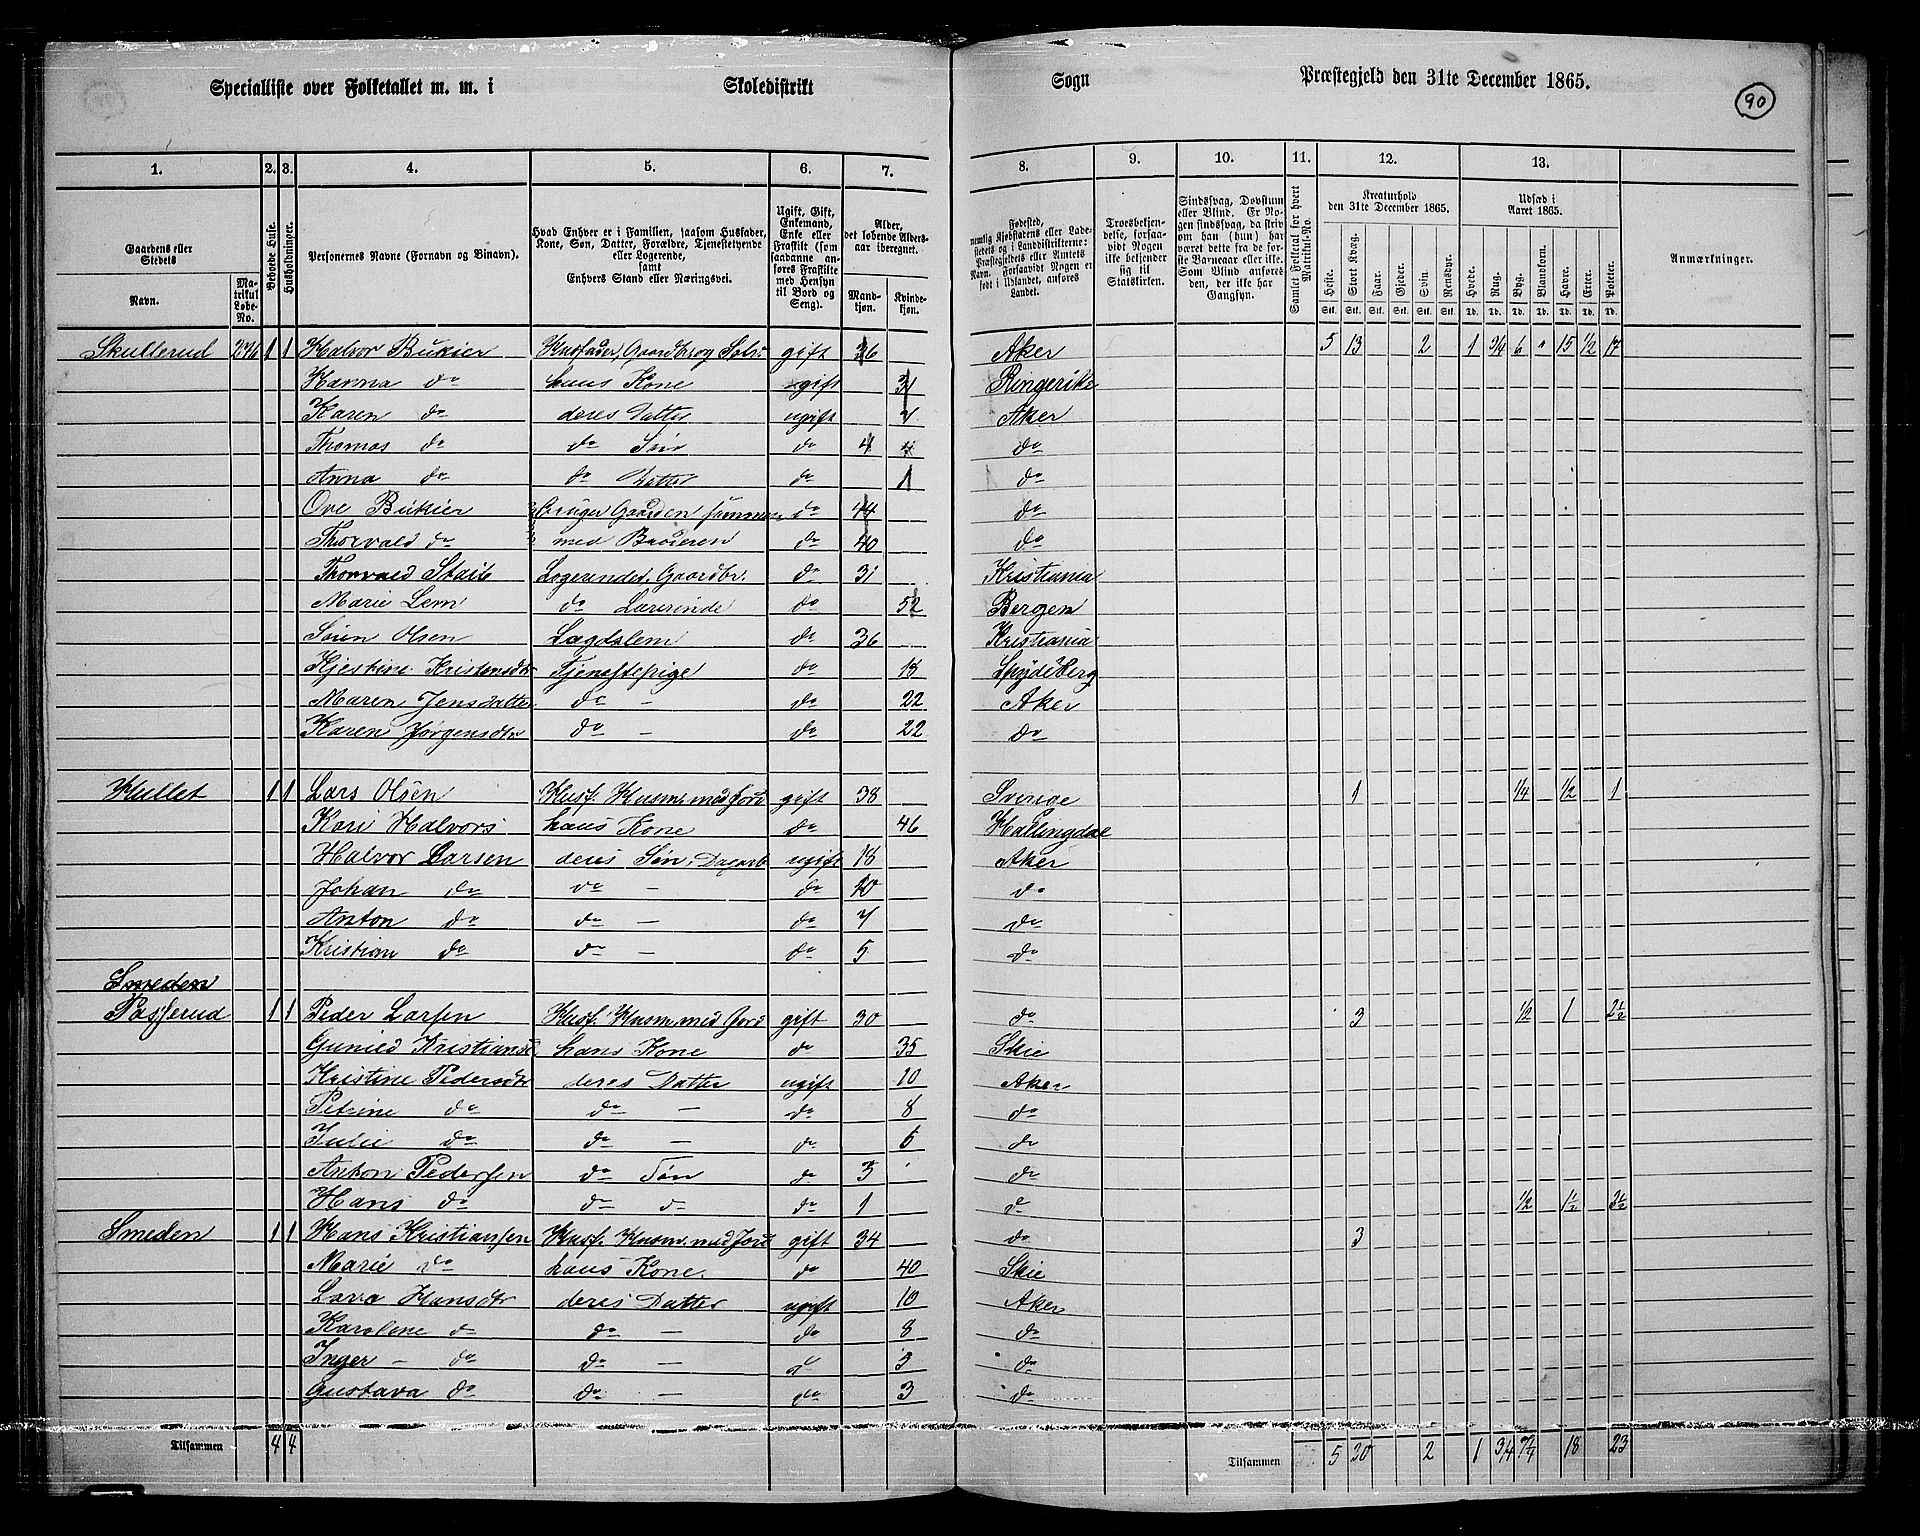 Specialliste over Folketallet m. m. i Skoledistrikt Sogn Præstegjeld den 31te December 1865.
90
1. 2. 3. 4. 5. 6. 7. 8. 9. 10. 11. 12. 13.
Gaardens eller Stedets Navn.
Matrikul Løbe-No.
Beboede Huse.
Husholdninger.
Personernes Navne (Fornavn og Binavn).
Hvad Enhver er i Familien, saasom Husfader, Kone, Søn, Datter, Forældre, Tjenestetyende eller Logerende, samt Enhvers Stand eller Næringsvei.
Ugift, Gift, Enkemand, Enke eller Fraskilt (som saadanne anføres Fraskilte med Hensyn til Bord og Seng).
Alder, det løbende Aldersaar iberegnet.
Mandkjøn. Kvindekjøn.
Fødested, nemlig Kjøbstadens eller Ladestedets og i Landdistrikterne: Præstegjeldets eller Amtets Navn. Forsaavidt Nogen er født i Udlandet, anføres Landet.
Troesbekjendelse, forsaavidt Nogen ikke bekjender sig til Statskirken.
Sindssvag, Døvstum eller Blind. Er Nogen sindssvag, da skrives om han (hun) har været dette fra de første Barneaar eller ikke. Som Blind anføres den, der ikke har Gangsyn.
Samlet Folketal for hvert Matrikul-No.
Kreaturhold den 31te December 1865.
Heste. Stort Kvæg. Faar. Gjeder. Svin. Rensdyr.
Udsæd i Aaret 1865.
Hvede. Rug. Byg. Blandkorn. Havre. Erter. Poteter.
Anmærkninger.
Stk. Stk. Stk. Stk. Stk. Stk. Td. Td. Td. Td. Td. Td. Td.
Skullerud 276 1 1 Halvor Bukier Husfader, Gaardbrog Selv. gift 36 Aker 5 13 2 1 3/4 6 " 15 1/2 17
Hanna do hans Kone gift 31 Ringerike
Karen do deres Datter ugift 7 Aker
Thomas do do Søn do 4 do
Anna do do Datter do 1 do
Ove Bukier bruger Gaarden sammen do 44 do
Thorvald do med Broderen do 40 do
Thorvald Logerende, Gaardbr. do 31 Kristiania
Marie Lem do Lærerinde do 52 Bergen
Søren Olsen Lægdslem do 36 Kristiania
Kjestine Kristensdtr Tjenestepige do 18 Spydeberg
Maren Jensdatter do — do 22 Aker
Karen Jørgensdtr do — do 22 do
Hullet 1 1 Lars Olsen Husf. Husm. med Jord gift 38 Sverige 1 1/4 1/2 1
Kari Halvors hans Kone do 46 Hallingdal
Halvor Larsen deres Søn, Dagarb ugift 18 Aker
Johan do do — do 10 do
Anton do do — do 7 do
Kristian do do — do 5 do
Smeden
Passerud 1 1 Peder Larsen Husf. Husm. med Jord gift 30 do 3 1/2 1 2 1/2
Gunild Kristiansd. hans Kone do 35 Skie
Kristine Pedersdtr deres Datter ugift 10 Aker
Petrine do do — do 8 do
Julie do do — do 6 do
Anton Pedersen do Søn do 3 do
Hans do do do do 1 do 1/2 1 1/2 2 1/2
Smeden 1 1 Hans Kristiansen Husf. Husm. med Jord gift 34 do 3
Marie do hans Kone. do 40 Skie
Lava Hansdtr deres Datter ugift 10 Aker
Karoline do do — do 8 do
Inger — do do — do 3 do
Gustava do do — do 3 do
Tilsammen 4 4 Tilsammen 5 20 2 1 3/4 7 1/4 18 23